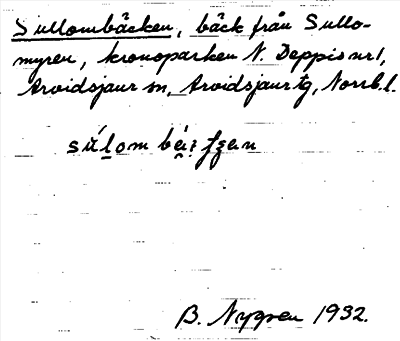 Sullombäcken, bäck från Sullo-
myren, kronoparken N. Deppis nr 1,
Arvidsjaur sn, Arvidsjaur tg, Norrb. l.
B. Nygren 1932.